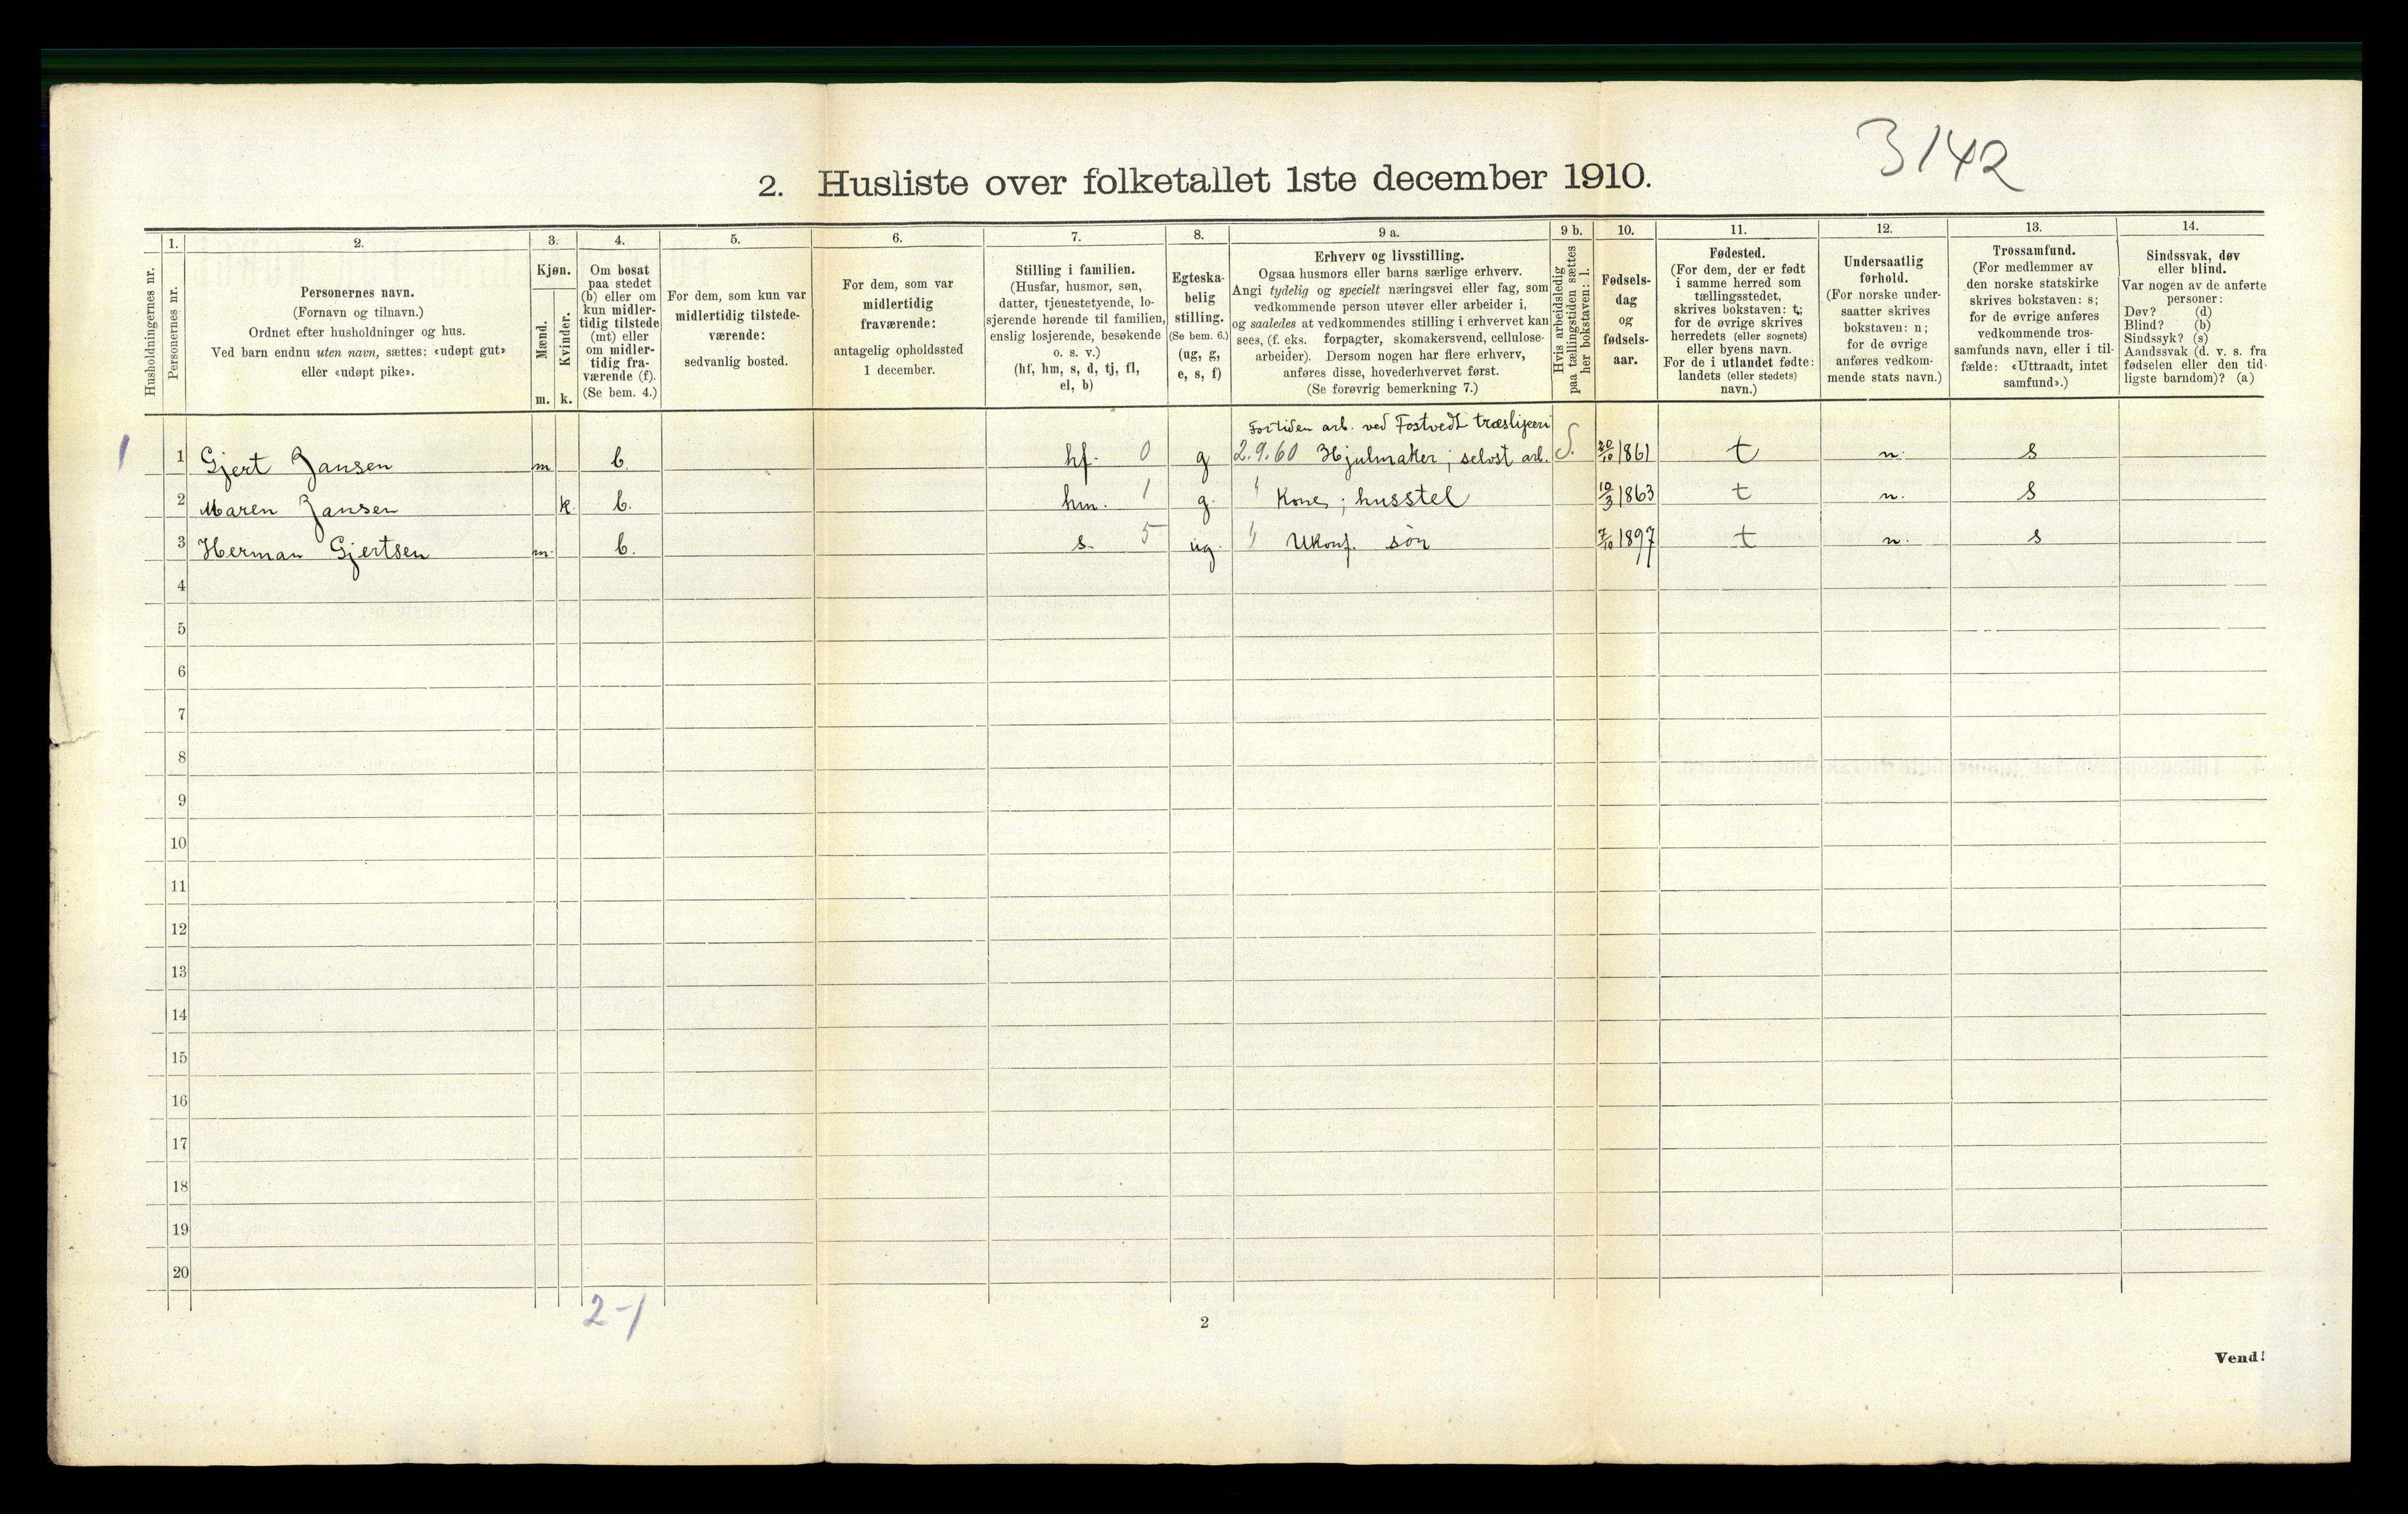 3142
2. Husliste over folketallet 1ste december 1910.
Husholdningernes nr.
1.
Personernes nr.
2.
Personernes navn.
(Fornavn og tilnavn.)
Ordnet efter husholdninger og hus.
Ved barn endnu uten navn, sættes: «udøpt gut»
eller «udøpt pike».
3.
Kjøn.
Mænd.
Kvinder.
m. k.
4.
Om bosat
paa stedet
(b) eller om
kun midler-
tidig tilstede
(mt) eller
om midler-
tidig fra-
værende (f).
(Se bem. 4.)
5.
For dem, som kun var
midlertidig tilstede-
værende:
sedvanlig bosted.
6.
For dem, som var
midlertidig
fraværende:
antagelig opholdssted
1 december.
7.
Stilling i familien.
(Husfar, husmor, søn,
datter, tjenestetyende, lo-
sjerende hørende til familien,
enslig losjerende, besøkende
o. s. v.)
(hf, hm, s, d, tj, fl,
el, b)
8.
Egteska-
belig
stilling.
(Se bem. 6.)
(ug, g,
e, s, f)
9 a.
Erhverv og livsstilling.
Ogsaa husmors eller barns særlige erhverv.
Angi tydelig og specielt næringsvei eller fag, som
vedkommende person utøver eller arbeider i,
og saaledes at vedkommendes stilling i erhvervet kan
sees, (f. eks. forpagter, skomakersvend, cellulose-
arbeider). Dersom nogen har flere erhverv,
anføres disse, hovederhvervet først.
(Se forøvrig bemerkning 7.)
9 b.
Hvis arbeidsledig
paa tællingstiden sættes
her bokstaven: l.
10.
Fødsels-
dag
og
fødsels-
aar.
11.
Fødested.
(For dem, der er født
i samme herred som
tællingsstedet,
skrives bokstaven: t;
for de øvrige skrives
herredets (eller sognets)
eller byens navn.
For de i utlandet fødte:
landets (eller stedets)
navn.)
12.
Undersaatlig
forhold.
(For norske under-
saatter skrives
bokstaven: n;
for de øvrige
anføres vedkom-
mende stats navn.)
13.
Trossamfund.
(For medlemmer av
den norske statskirke
skrives bokstaven: s;
for de øvrige anføres
vedkommende tros-
samfunds navn, eller i til-
fælde: «Uttraadt, intet
samfund».)
14.
Sindssvak, døv
eller blind.
Var nogen av de anførte
personer:
Døv? (d)
Blind? (b)
Sindssyk? (s)
Aandssvak (d. v. s. fra
fødselen eller den tid-
ligste barndom)? (a)
Fortiden arb. ved Fostvedt træsliperi
1 1 Gjert Jansen m b. hf. 0 g 2.9.60 Hjulmaker; selvst arb. S. 20/10 1861 t n. s
2 Maren Jansen k. b. hm. 1 g. " Kone; husstel 10/3 1863 t n. s
3 Herman Gjertsen m. b. s. 5 ug. " Ukonf. søn 7/10 1897 t n. s
4
5
6
7
8
9
10
11
12
13
14
15
16
17
18
19
20
2-1
2
Vend!